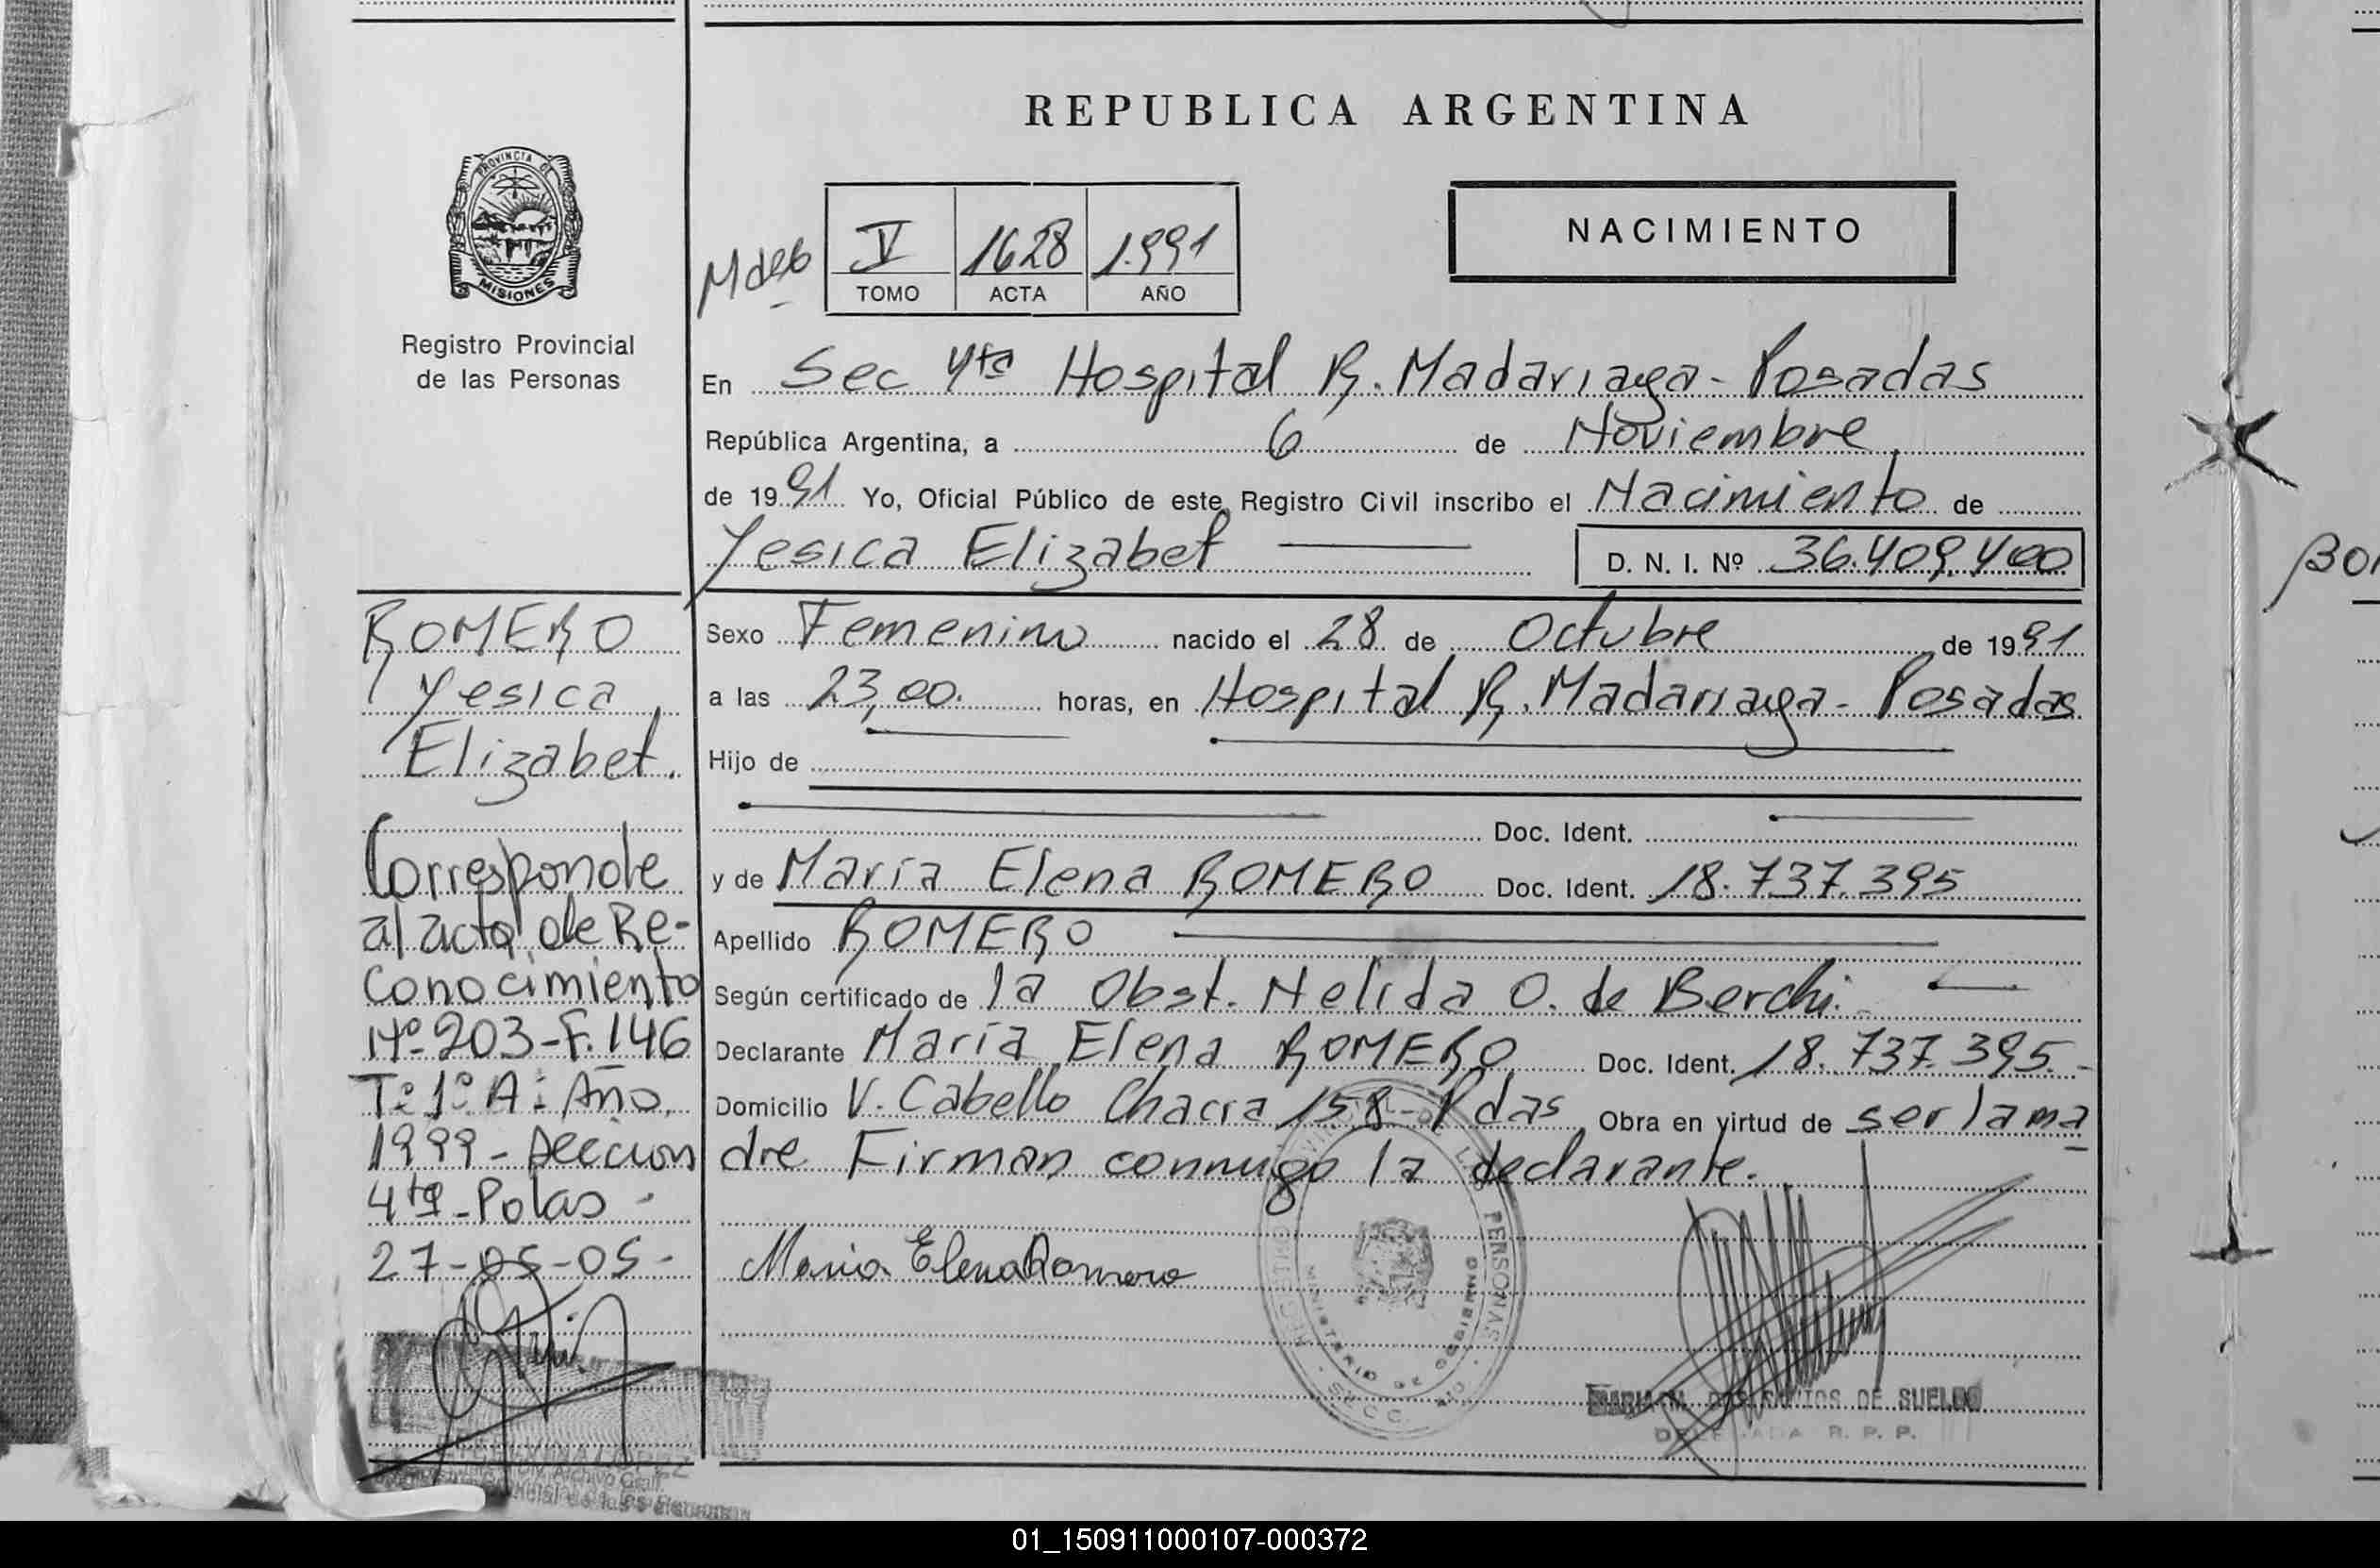 REPUBLICA ARGENTINA
PROVINCIA DE
MISIONES
Registro Provincial
de las Personas
NACIMIENTO
V 1628 1.991
TOMO ACTA AÑO
En Sec 4ta Hospital R. Madariaga - Posadas
República Argentina, a 6 de Noviembre
de 1991 Yo, Oficial Público de este Registro Civil inscribo el Nacimiento de
Yesica Elizabet D. N. I. Nº 36.409.400
Sexo Femenino nacido el 28 de Octubre de 1991
a las 23,00. horas, en Hospital R. Madariaga - Posadas
Hijo de
Doc. Ident.
y de María Elena ROMERO Doc. Ident. 18.737.395
Apellido ROMERO
Según certificado de la Obst. Nelida O. de Berchi.
Declarante María Elena ROMERO Doc. Ident. 18.737.395.-
Domicilio V. Cabello Chacra 158 - Pdas Obra en virtud de ser la ma
dre Firman conmigo la declarante.
Maria Elena Romero
ROMERO
Yesica
Elizabet.
Corresponde
al acta de Re-
conocimiento
Nº 203-F. 146
Tº 1º A: Año
1999 - Seccion
4ta - Pdas -
27-05-05-
PERSONAS
MINISTERIO DE GOBIERNO
DE SUELDO
R. P. P.
01_150911000107-000372